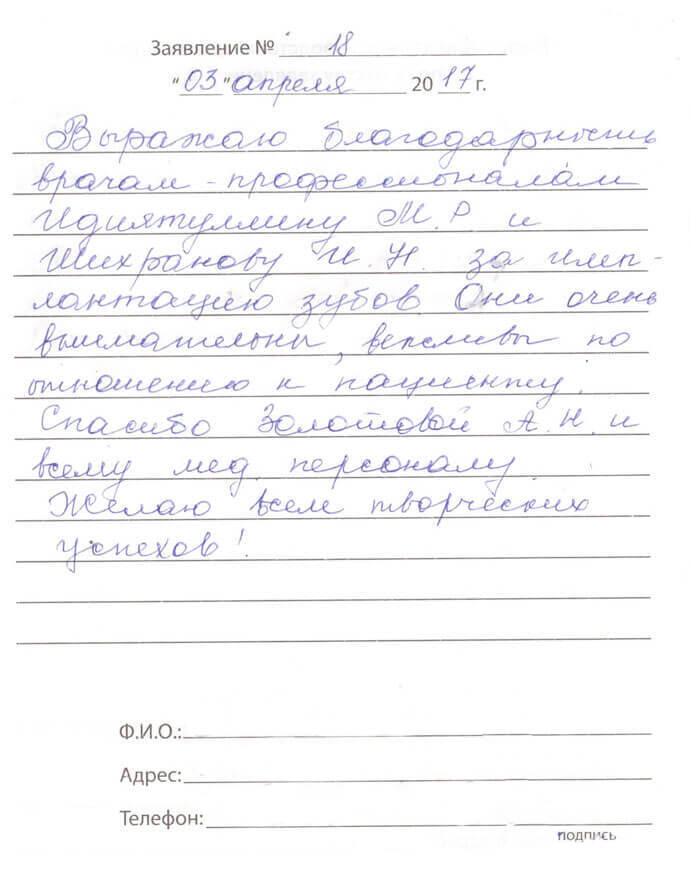 Заявление № 18
"03" апреля 2017 г.
Выражаю благодарность
врачам - профессионалам
Идиятуллину М.Р и
Шихранову И.Н. за имп-
лантацию зубов. Они очень
внимательны, вежливы по
отношению к пациенту.
Спасибо Золотовой А.Н. и
всему мед. персоналу.
Желаю всем творческих
успехов!
Ф.И.О.:
Адрес:
Телефон:
подпись